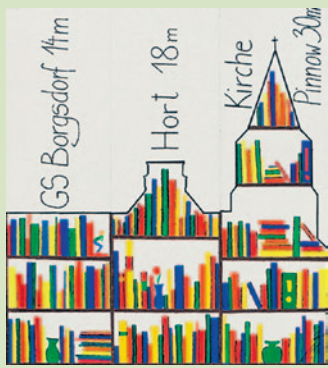 GS Borgsdorf 14m
Hort 18m
Kirche
Pinnow 30m